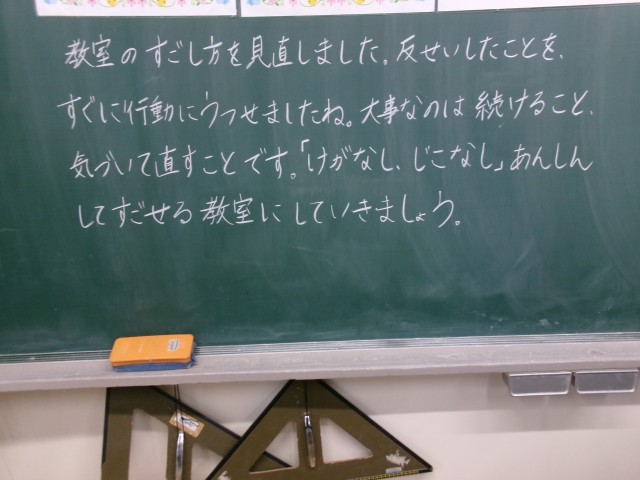 教室のすごし方を見直しました。反せいしたことを、
すぐに行動にうつせましたね。大事なのは続けること、
気づいて直すことです。「けがなし、じこなし」あんしん
してすごせる教室にしていきましょう。